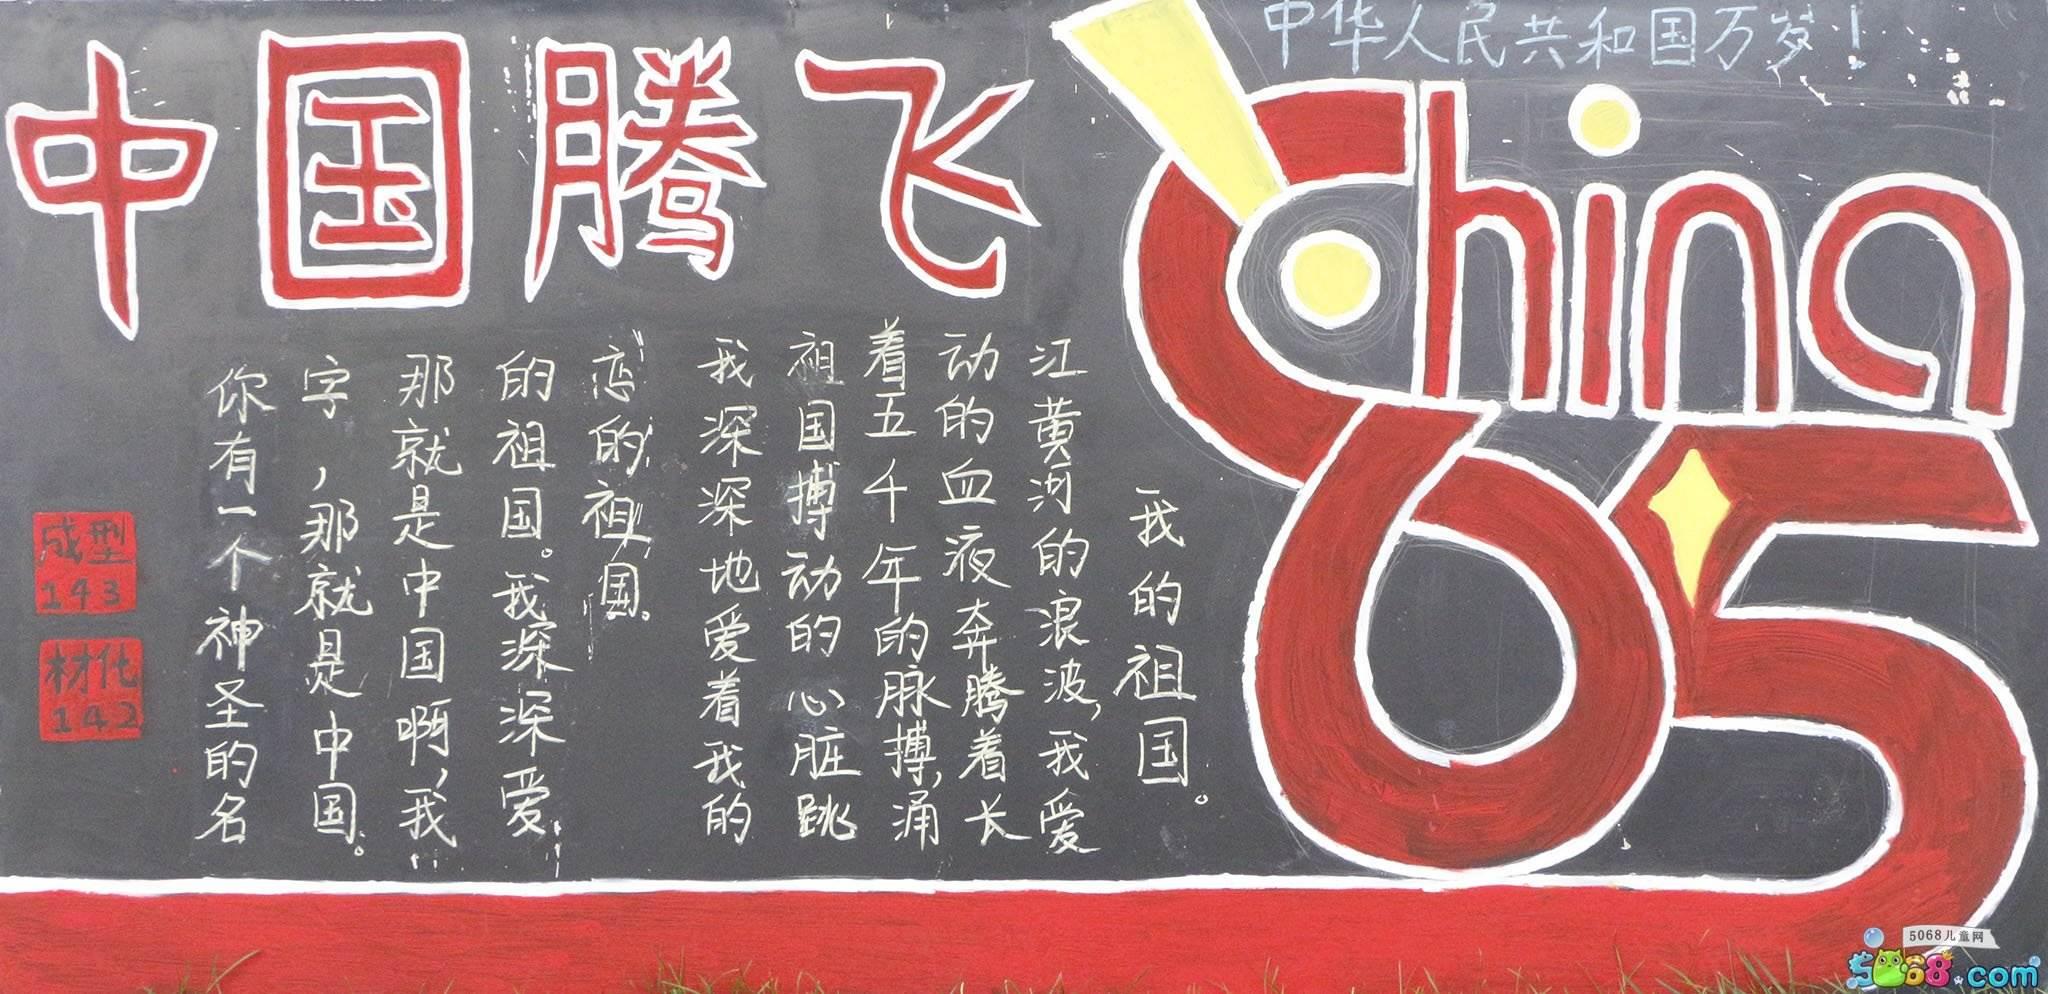 中国腾飞
中华人民共和国万岁！
China
65
你有一个神圣的名
字，那就是中国。
那就是中国啊，我
的祖国。我深深爱
恋的祖国。
我深深地爱着我的
祖国搏动的心脏跳
着五千年的脉搏，涌
动的血液奔腾着长
江黄河的浪波，我爱
我的祖国。
成型
143
材化
142
5068儿童网
5068.com